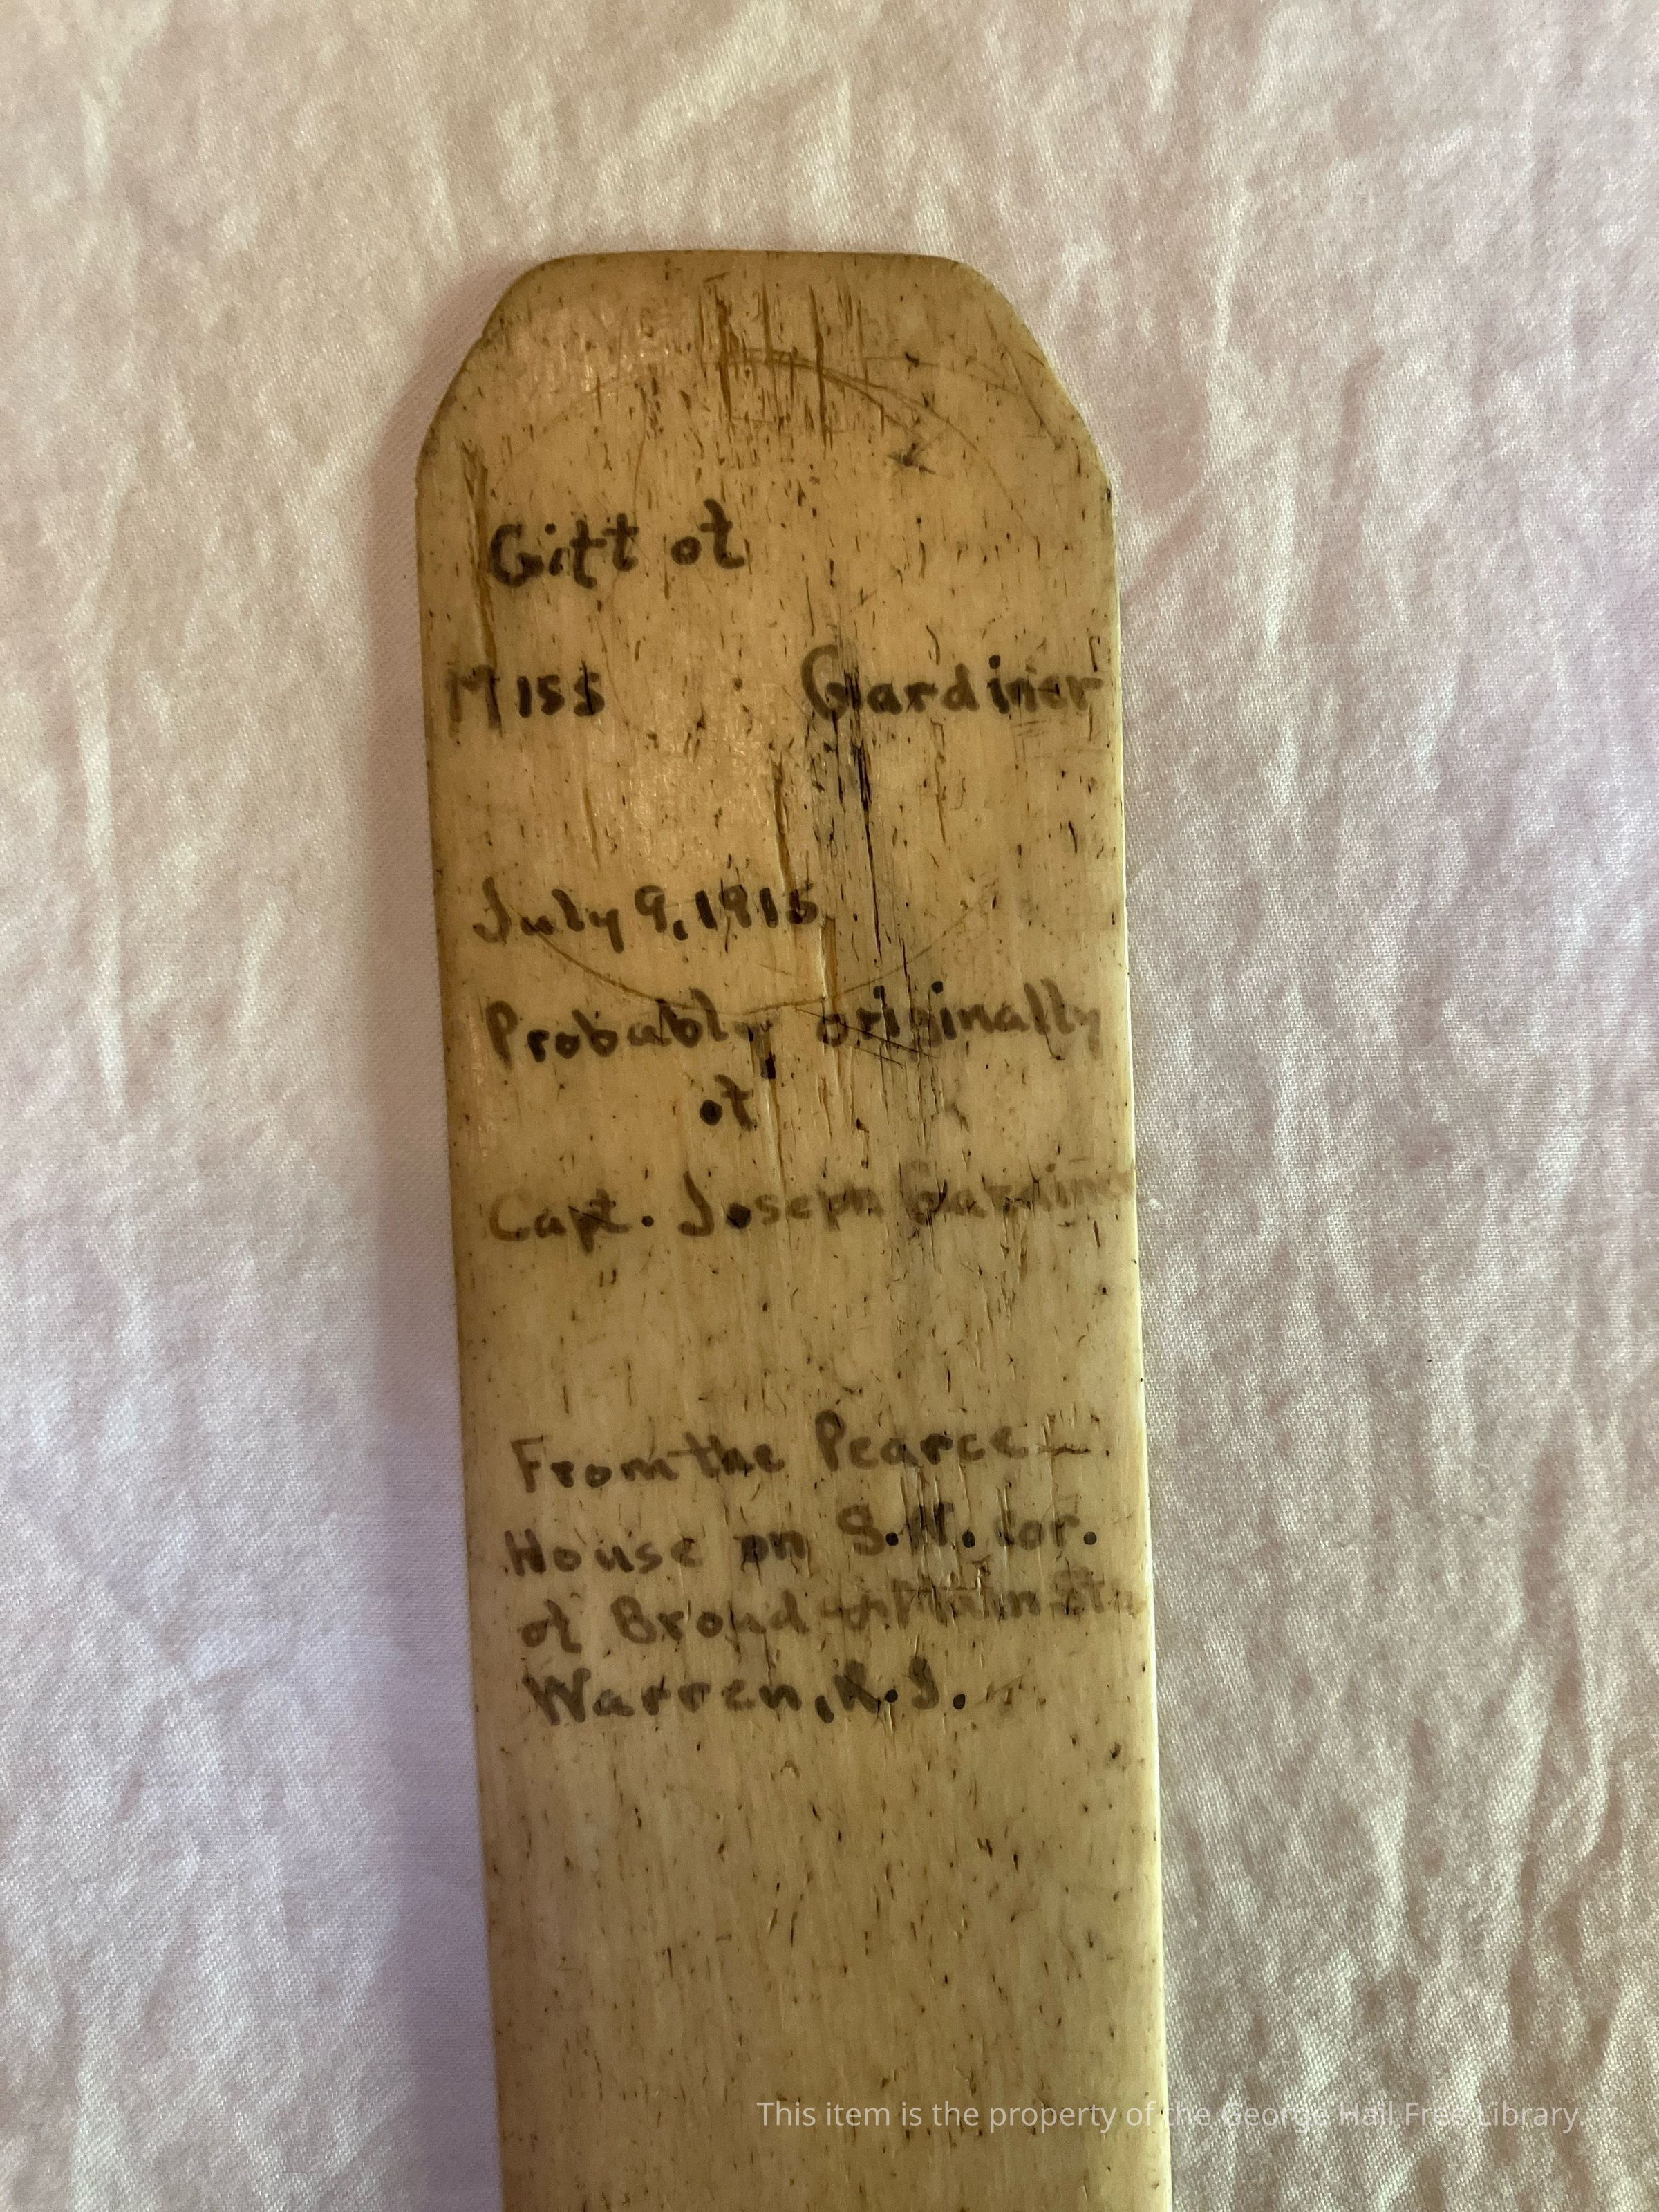 Gift of
Miss Gardiner
July 9, 1915
Probably originally
of
Capt. Joseph Gardiner
From the Pearce
House on S.W. cor.
of Broad & Main Sts
Warren, R.I.
This item is the property of the George Hail Free Library.